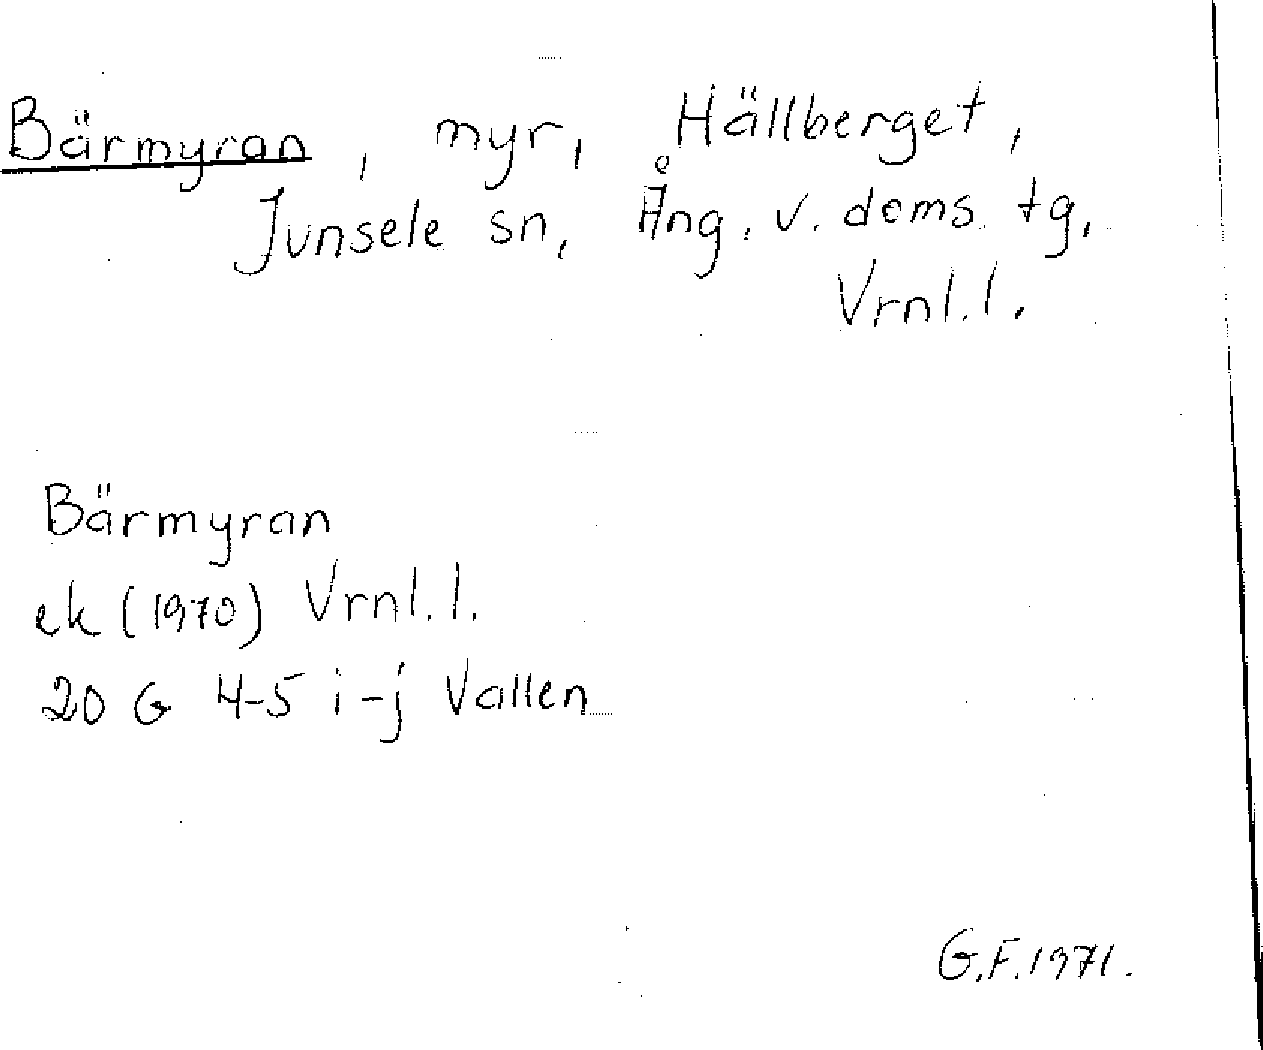 Bärmyran, myr, Hällberget,
Junsele sn, Ång. v. doms. tg,
Vrnl.l.
Bärmyran
ek (1970) Vrnl.l.
20 G 4-5 i-j Vallen
G.F.1971.